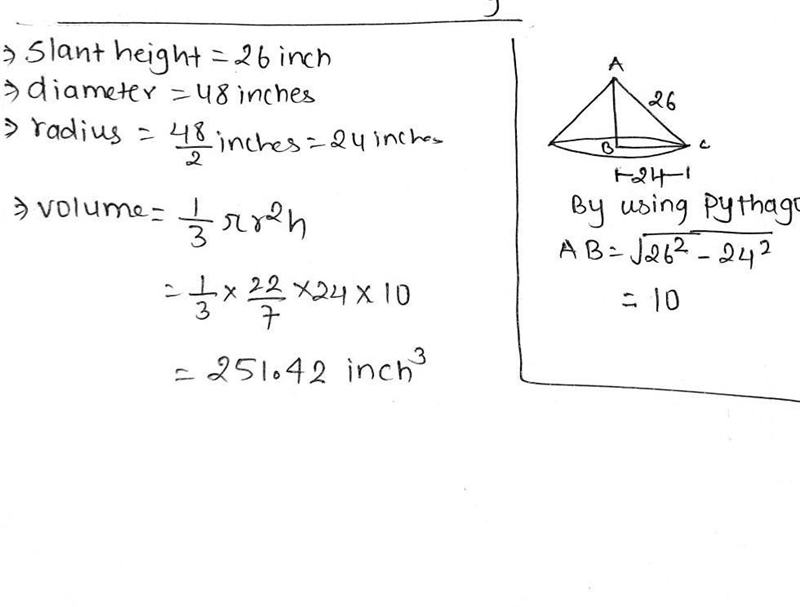 ⇒ Slant height = 26 inch
⇒ diameter = 48 inches
⇒ radius = 48/2 inches = 24 inches
⇒ volume = 1/3 πr²h
= 1/3 × 22/7 × 24 × 10
= 251.42 inch³
A
26
B
C
24
By using pythago
AB = √26² - 24²
= 10